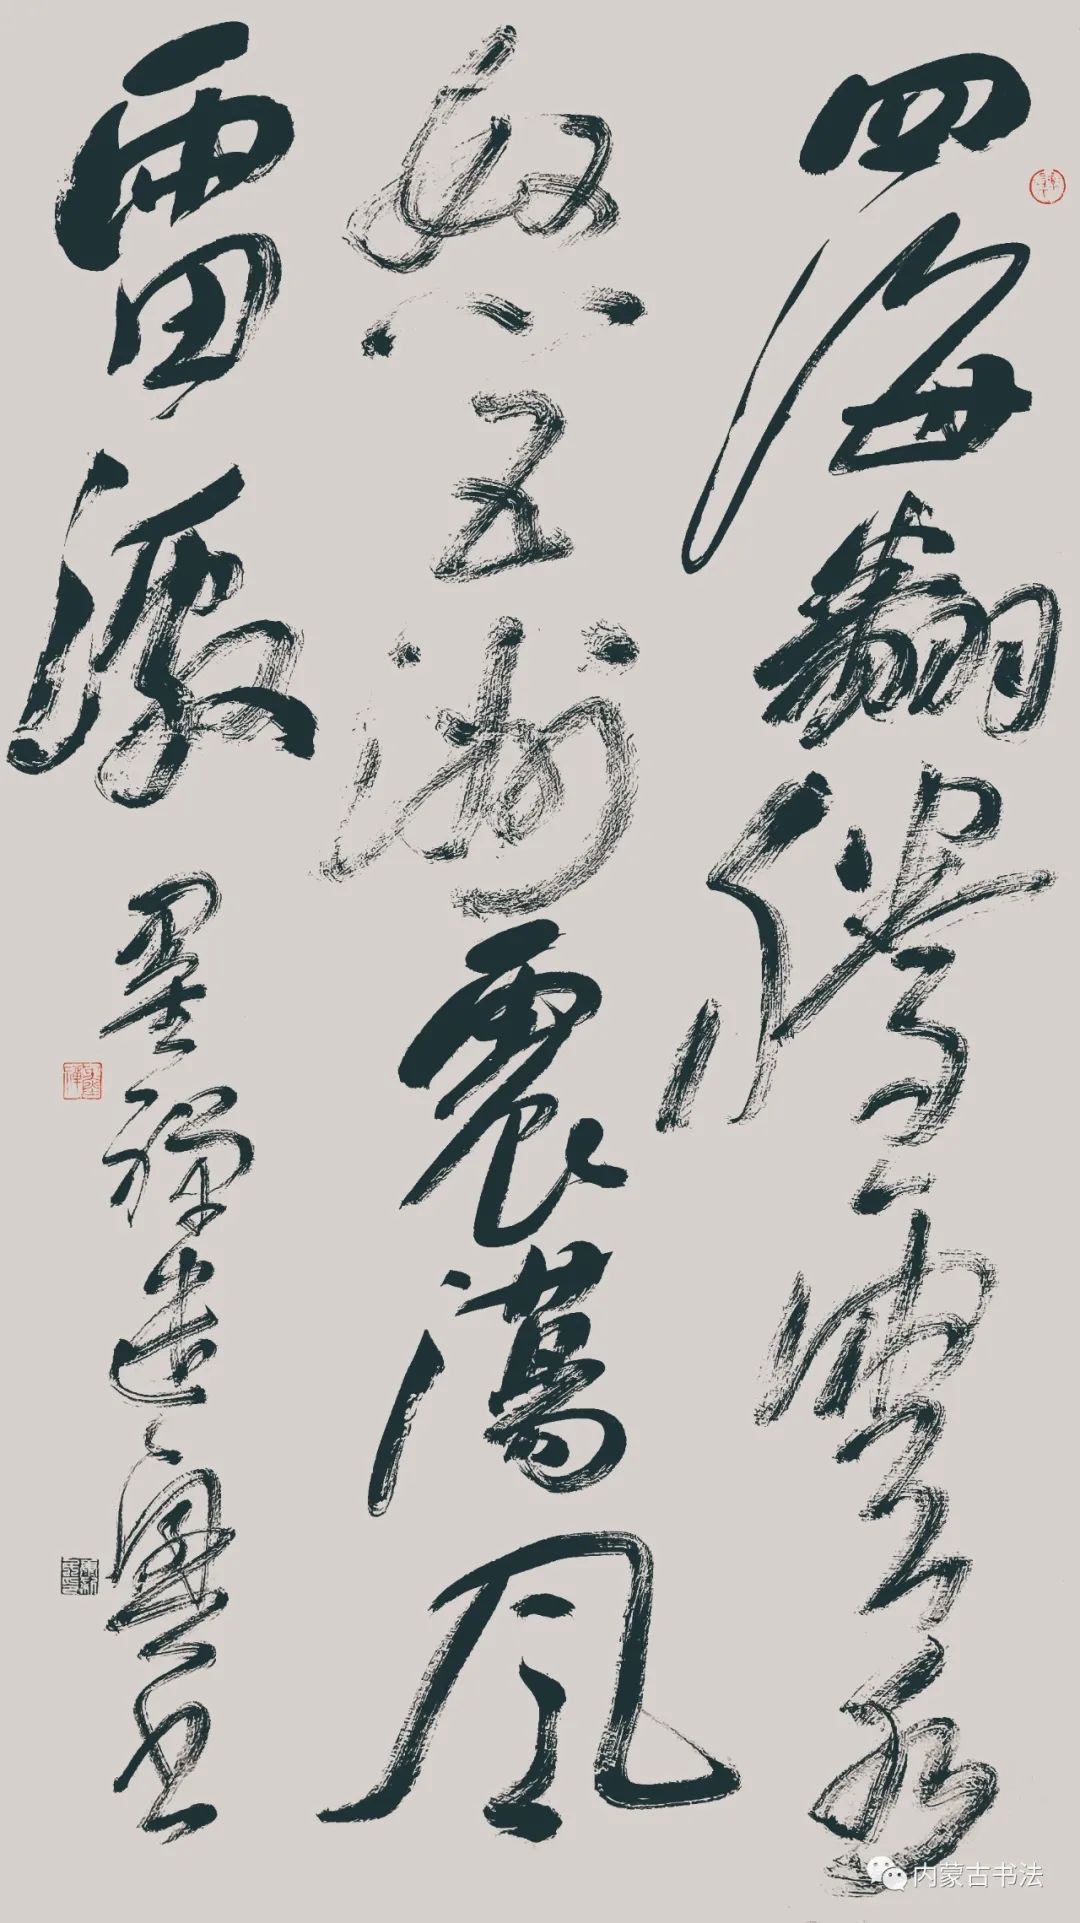 四海翻腾云水
怒五洲震荡风
雷激
墨禅遣兴书
内蒙古书法